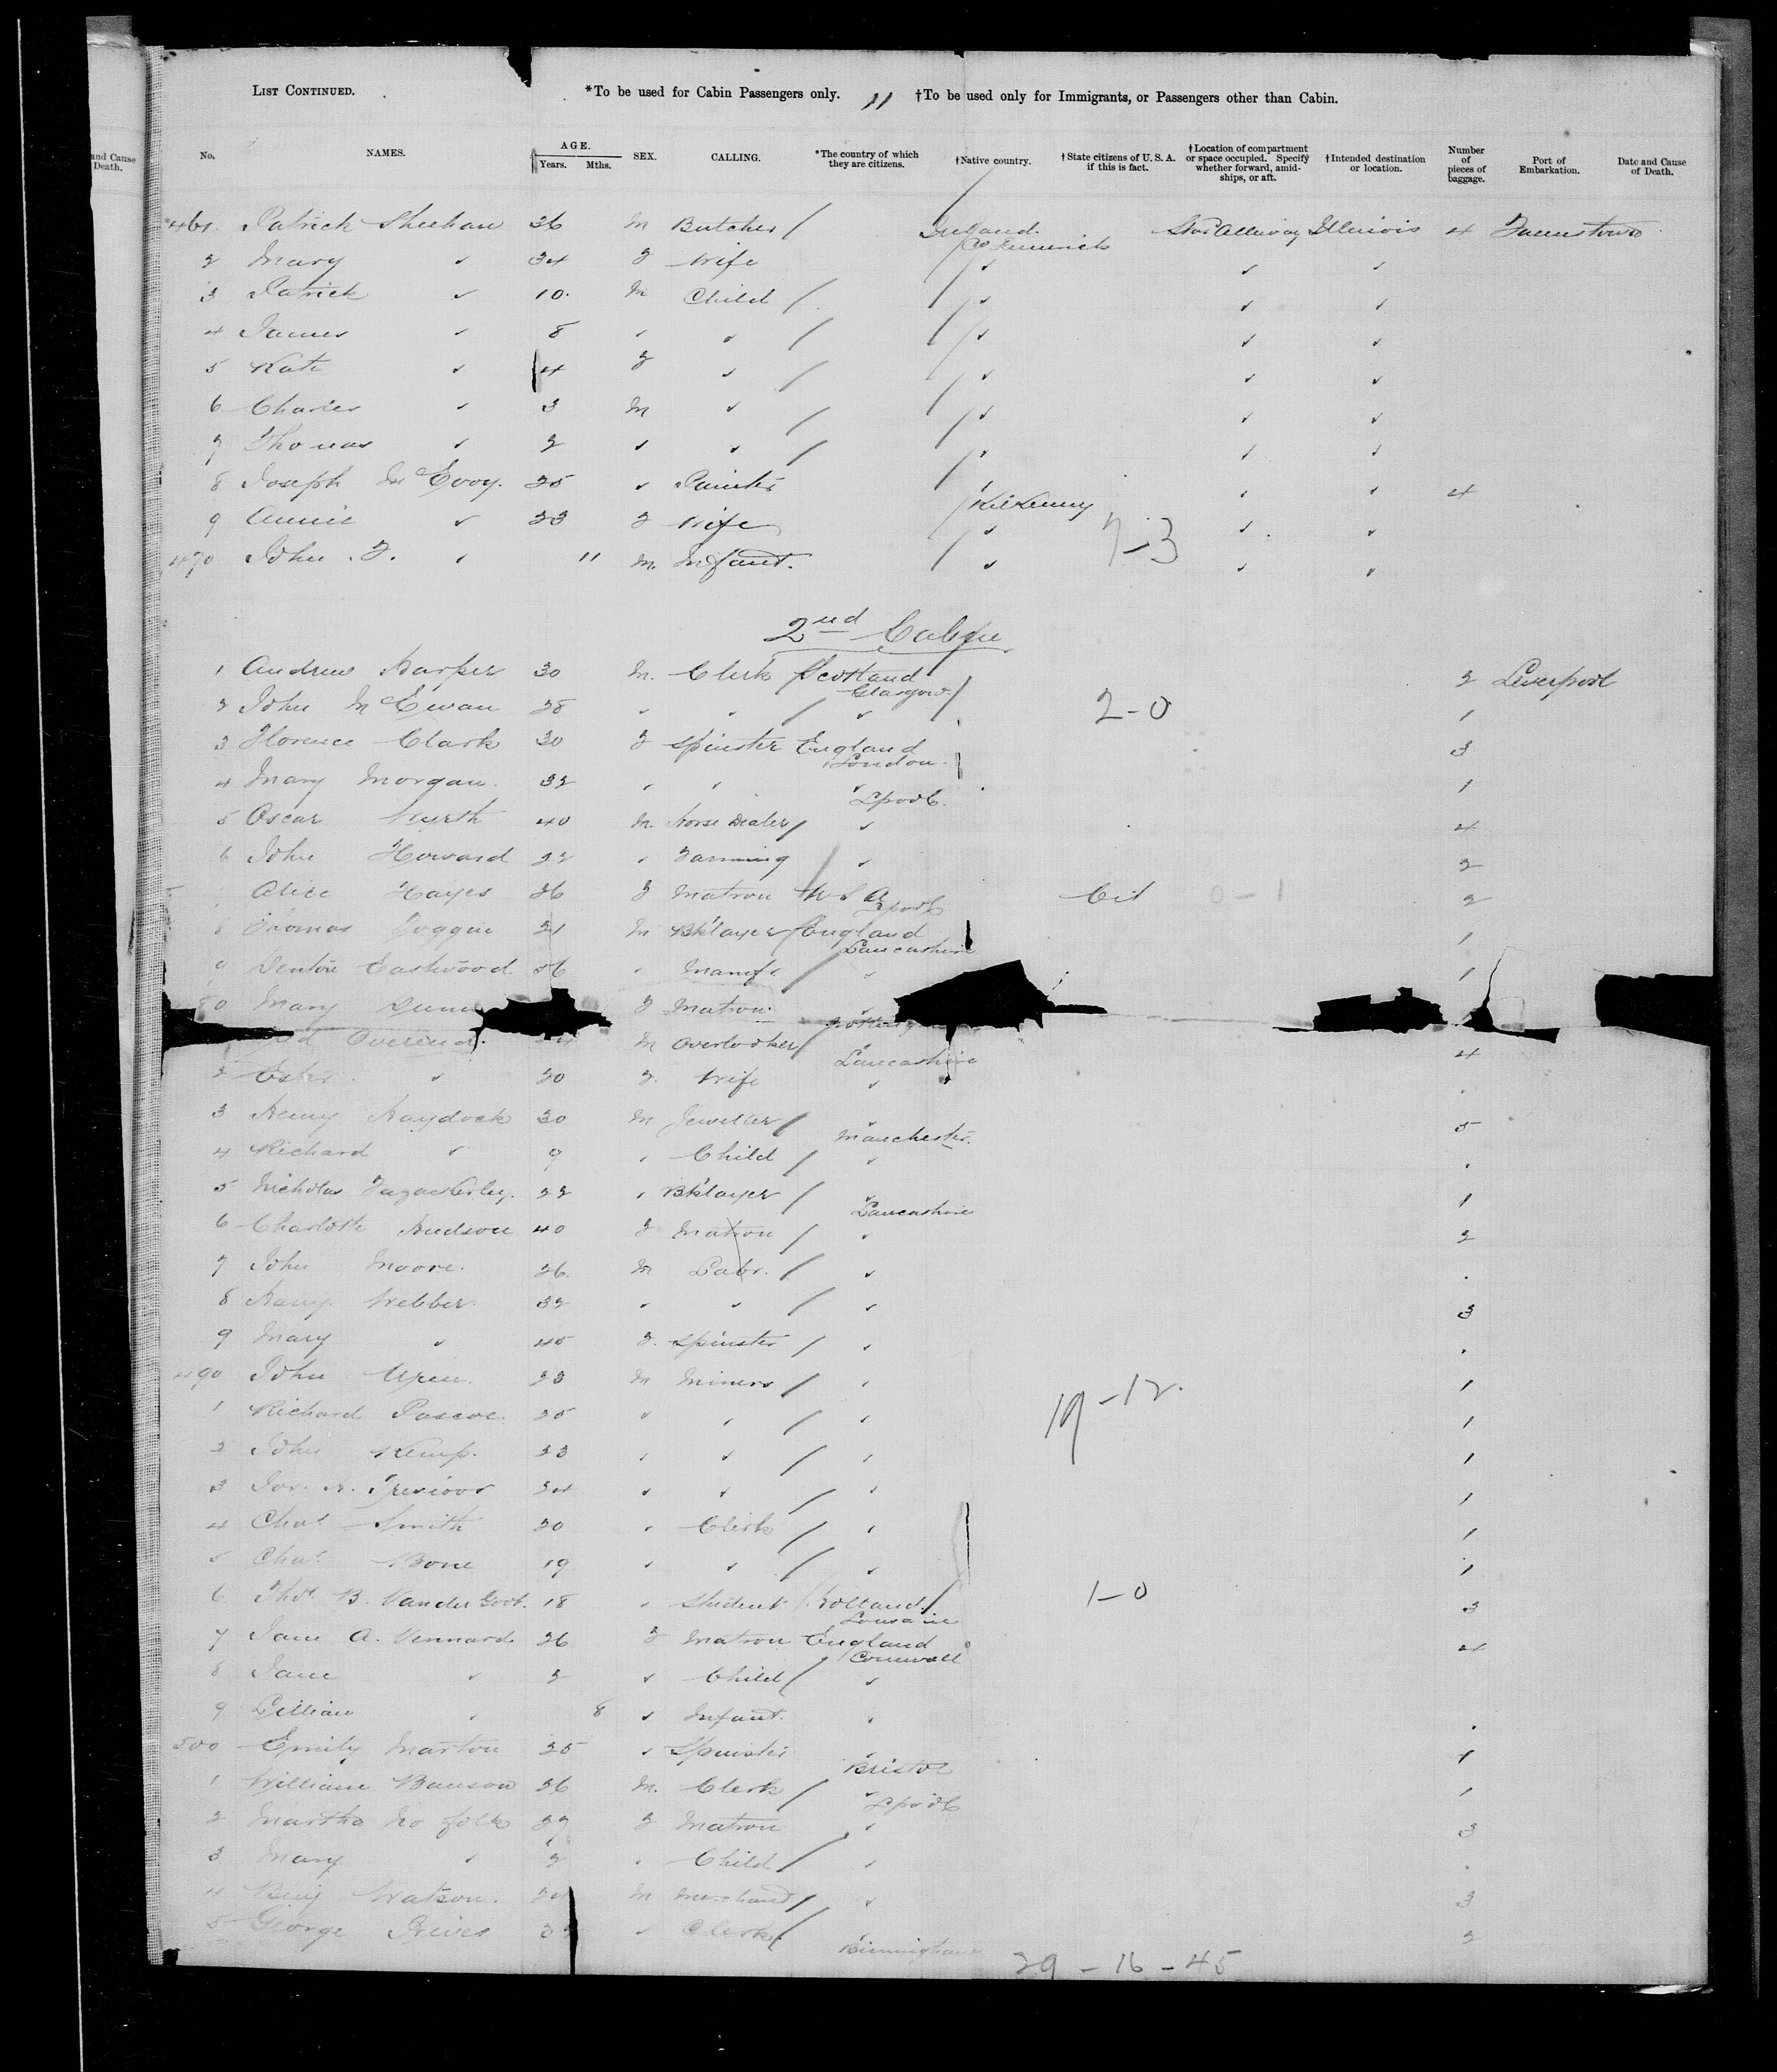 and Cause
Death.
LIST CONTINUED. *To be used for Cabin Passengers only. 11 †To be used only for Immigrants, or Passengers other than Cabin.
No. NAMES. AGE. Years. Mths. SEX. CALLING. *The country of which they are citizens. †Native country. †State citizens of U. S. A. if this is fact. †Location of compartment or space occupied. Specify whether forward, amidships, or aft. †Intended destination or location. Number of pieces of baggage. Port of Embarkation. Date and Cause of Death.
461 Patrick Sheehan 36 M Butcher Ireland. Illinois 4 Queenstown
Co Limerick
2 Mary " 34 F Wife " " "
3 Patrick " 10 M Child " " "
4 James " 8 " " " " "
5 Kate " 4 F " " " "
6 Charles " 3 M " " " "
7 Thomas " 2 " " " " "
8 Joseph McEvoy. 25 " Painter Kilkenny " " 4
9 Annie " 23 F Wife " 7-3 " "
470 John. F. " 11 M. Infant. " " "
2nd Cabin
1 Andrew Harper 30 M. Clerk Scotland 2 Liverpool
Glasgow.
2 John McEwan 28 " " " 2-0 1
3 Florence Clark 30 F Spinster England 3
London.
4 Mary Morgan. 32 " " " 1
Lpool.
5 Oscar 40 M. Horse Dealer " 4
6 John Howard 22 " Farming " 2
Alice Hayes 26 F Matron U S A Cit 0-1 2
Lpool
8 Thomas 21 M Bklayer England 1
Lancashire
9 Denton Eastwood 56 " Manufr " 1
80 Mary F Matron "
Overend. M Overlooker " 4
Lancashire
2 " 20 F. Wife "
3 Henry Haydock 30 M Jeweller " 5
Manchester.
4 Richard " 9 " Child "
5 Nicholas 22 " Bklayer " 1
Lancashire
6 Charlotte Hudson 40 F Matron " 2
7 John Moore. 26. M Labr. "
8 Harry Webber. 32 " " " 3
9 Mary " 45 F. Spinster "
490 John Uren. 23 M Miners " 1
19-12.
1 Richard Pascoe. 25 " " " 1
2 John Kemp. 23 " " " 1
3 24 " " " 1
4 Chas Smith 20 " Clerk " 1
5 Chas Bone 19 " " " 1
6 Thos B. Vander Goot. 18 " Student Holland. 1-0 3
7 Jane A. Vennard 26 F Matron England 4
Cornwall
8 Jane " 2 " Child "
9 Lillian " 8 " Infant. "
500 Emily Marton 25 " Spinster " 1
Bristol
1 William 26 M. Clerk " 1
Lpool
2 Martha 27 F Matron " 3
3 Mary " 2 " Child "
4 Benj Watson. M Merchant " 3
5 George " Clerk " 2
Birmingham
29-16-45